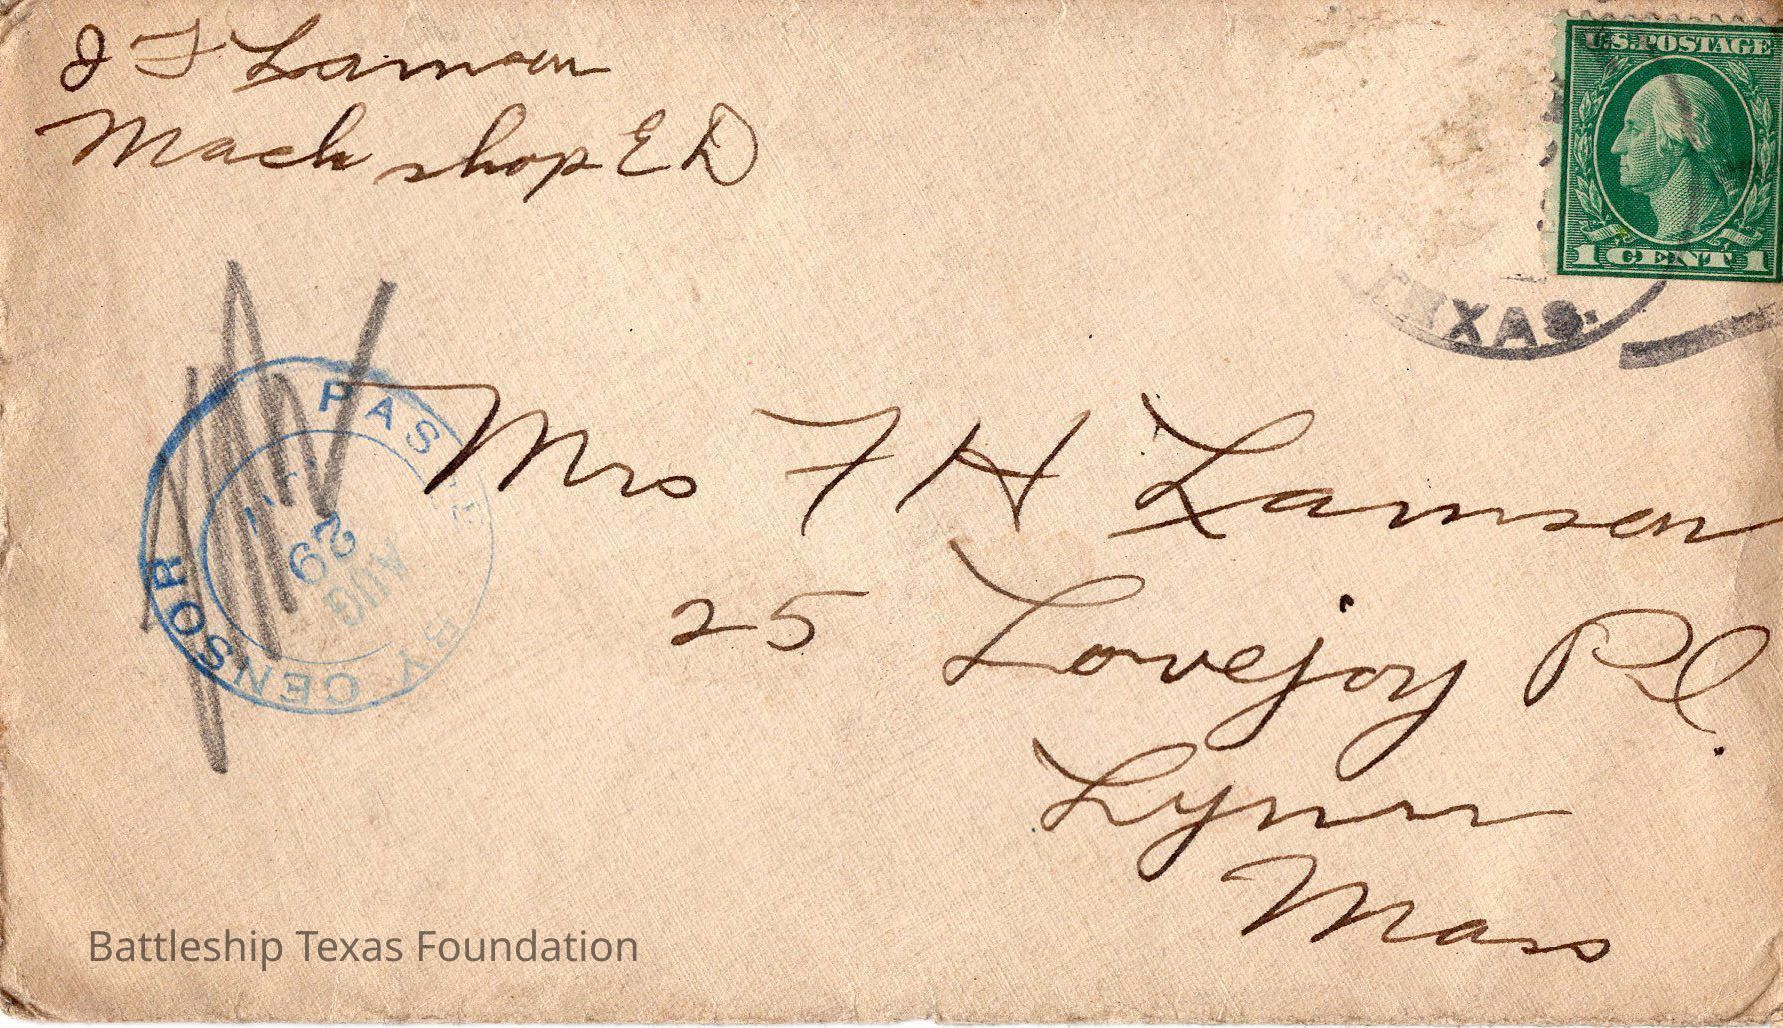 J F Lamson
Mach shop E D
U.S. POSTAGE
1 CENT 1
TEXAS.
PASSED BY CENSOR
29
AUG
Mrs F H Lamson
25 Lovejoy Pl.
Lynn
Mass
Battleship Texas Foundation